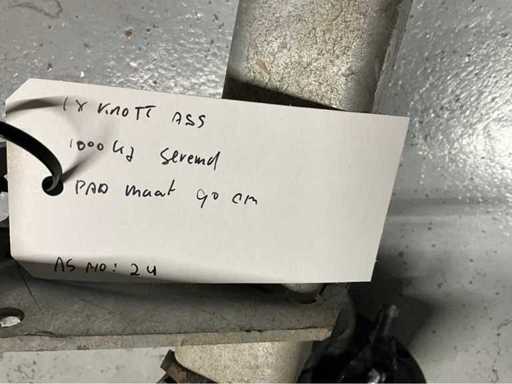 1x KNOTT ASS
1000 kg geremd
PAD maat 90 cm
AS NO: 24